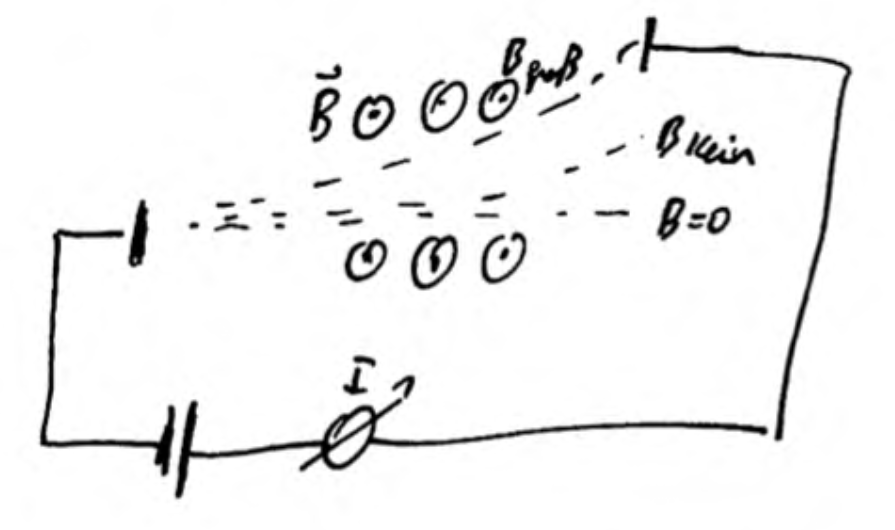 B groß
B⃗
B klein
B=0
I